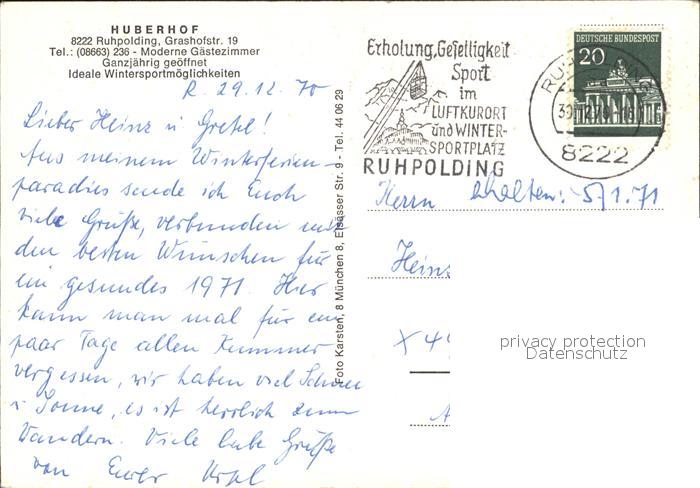 HUBERHOF
8222 Ruhpolding, Grashofstr. 19
Tel.: (08663) 236 - Moderne Gästezimmer
Ganzjährig geöffnet
Ideale Wintersportmöglichkeiten
R. 29.12.70
Lieber Heinz u Gretel!
Aus meinem Winterferien-
paradies sende ich Euch
viele Grüße, verbunden mit
den besten Wünschen für
ein gesundes 1971. Hier
kann man mal für ein
paar Tage allen Kummer
vergessen, wir haben viel Schnee
u Sonne, es ist herrlich zum
Wandern. Viele liebe Grüße
von Eurer
Foto Karsten, 8 München 8, Elsässer Str. 9 - Tel. 44 06 29
Erholung, Geselligkeit
Sport
im
LUFTKURORT
und WINTER-
SPORTPLATZ
RUHPOLDING
DEUTSCHE BUNDESPOST
20
8222
Herrn erhalten: 5/1.71
Heinz
privacy protection
Datenschutz